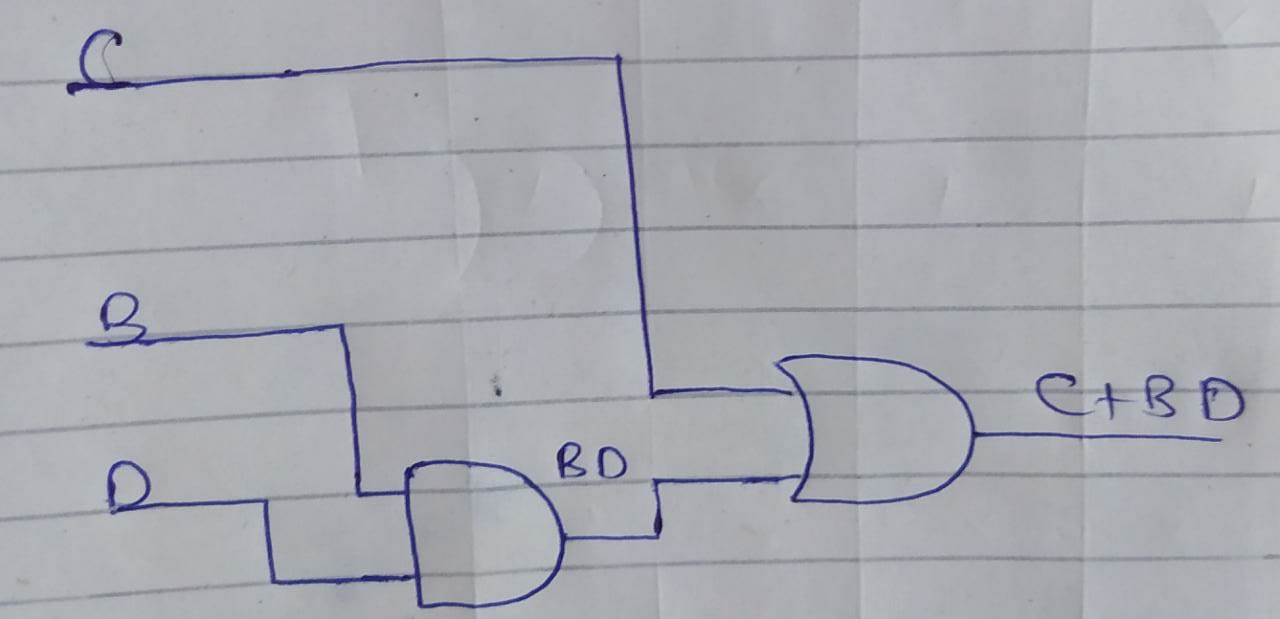 C
B
D
BD
C+BD